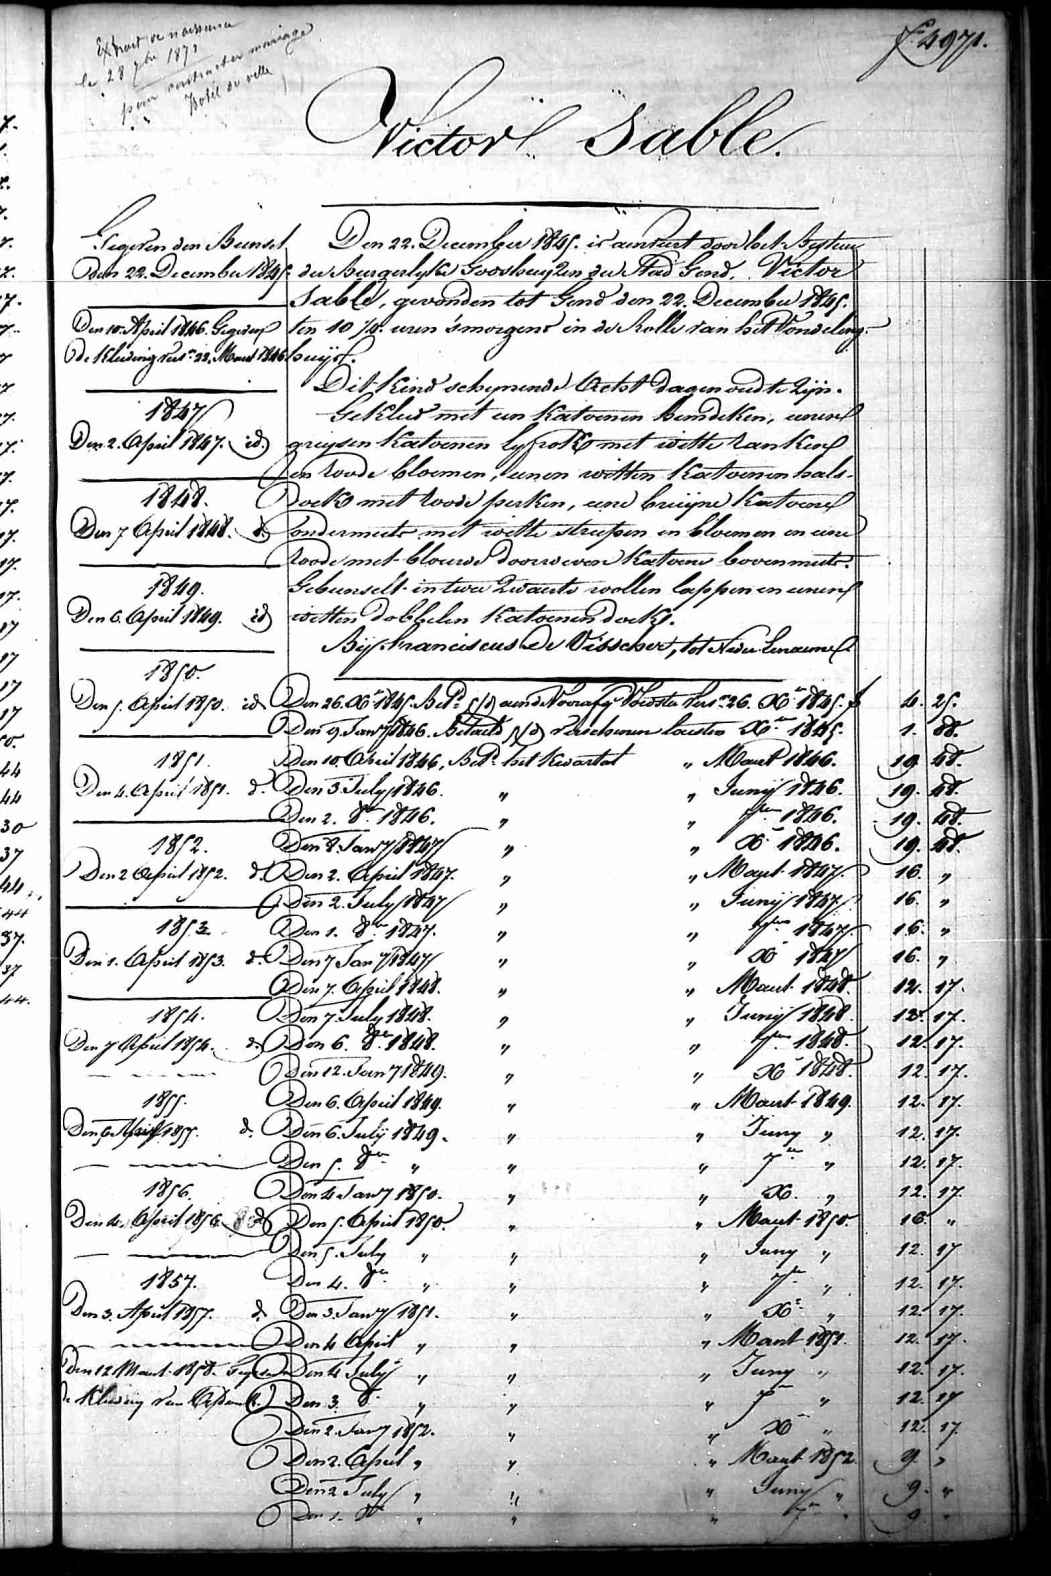 Extrait de naissance
le 28 7bre 1871
pour contracter mariage
hotel de ville
fo 4971.
Victor Sable.
Gegeven den Bunsel
den 22. December 1845.
Den 10. April 1846. Gegeven
de Kleeding 22. Maart 1846
1847
Den 2. April 1847. id.
1848.
Den 7 April 1848. d.
1849.
Den 6. April 1849. id
1850.
Den 5. April 1850. id
1851.
Den 4. April 1851. d.
1852.
Den 2 April 1852. d.
1853.
Den 1. April 1853. d.
1854.
Den 7 April 1854. d.
1855.
Den 6 April 1855. d.
1856.
Den 4. April 1856. d.
1857.
Den 3. April 1857. d.
Den 12 Maart 1858. Gegeven
de Kleeding van
Den 22. December 1845. is aenveert door het Bestuer
der Burgerlyke Godshuyzen der Stad Gend, Victor
Sable, gevonden tot Gend den 22. December 1845.
ten 10 1/4 uren 'smorgens in de Rolle van het Vondeling-
huijs.
Dit Kind schynende Acht dagen oud te zijn.
Gekleed met een Katoenen hemdeken, eenen
gryzen Katoenen lyfrok met witte ranken
en roode bloemen, eenen witten Katoenen hals-
doek met roode perken, eene bruyne Katoene
ondermuts met witte streepen en bloemen en eene
roode met blouwe doorweven Katoene bovenmuts.
Gebunselt in twee zwarte wollen lappen en eenen
witten dobbelen Katoenen doek.
Bij Franciscus De Visscher, tot Neder-Eenaeme
Den 26. Xr 1845. Betd aende Voorafge Voedster 26. Xr 1845. f 4. 25.
Den 9 Janry 1846. Betaeld verschenen laesten Xr 1845. 1. 88.
Den 10. April 1846, Betd het Kwartal „ Maart 1846. 19. 48.
Den 3 July 1846. „ „ Junij 1846. 19. 48.
Den 2. 8re 1846. „ „ 7re 1846. 19. 48.
Den 8. Janry 1847 „ „ Xr 1846. 19. 48.
Den 2. April 1847. „ „ Maart 1847. 16. „
Den 2. July 1847 „ „ Junij 1847. 16. „
Den 1. 8re 1847. „ „ 7re 1847 16. „
Den 7 Janry 1847 „ „ Xr 1847 16. „
Den 7. April 1848. „ „ Maart 1848. 12. 17.
Den 7 July 1848. „ „ Junij 1848. 12. 17.
Den 6. 8re 1848. „ „ 7re 1848. 12. 17.
Den 12. Janry 1849. „ „ Xr 1848. 12. 17.
Den 6. April 1849. „ „ Maart 1849. 12. 17.
Den 6. July 1849. „ „ Juny „ 12. 17.
Den 5. 8re „ „ „ 7re „ 12. 17.
Den 4 Janry 1850. „ „ Xr „ 12. 17.
Den 5. April 1850. „ „ Maart 1850. 16. „
Den 5. July „ „ „ Juny „ 12. 17
Den 4. 8re „ „ „ 7re „ 12. 17.
Den 3. Janry 1851. „ „ Xr „ 12. 17.
Den 4 April „ „ „ Maart 1851. 12. 17.
Den 4 July „ „ „ Juny „ 12. 17.
Den 3. 8re „ „ „ 7re „ 12. 17
Den 2. Janry 1852. „ „ Xr „ 12. 17.
Den 2. April „ „ „ Maart 1852. 9. „
Den 2 July „ „ „ Juny „ 9. „
Den 1. 8re „ „ „ 7re „ 9. „